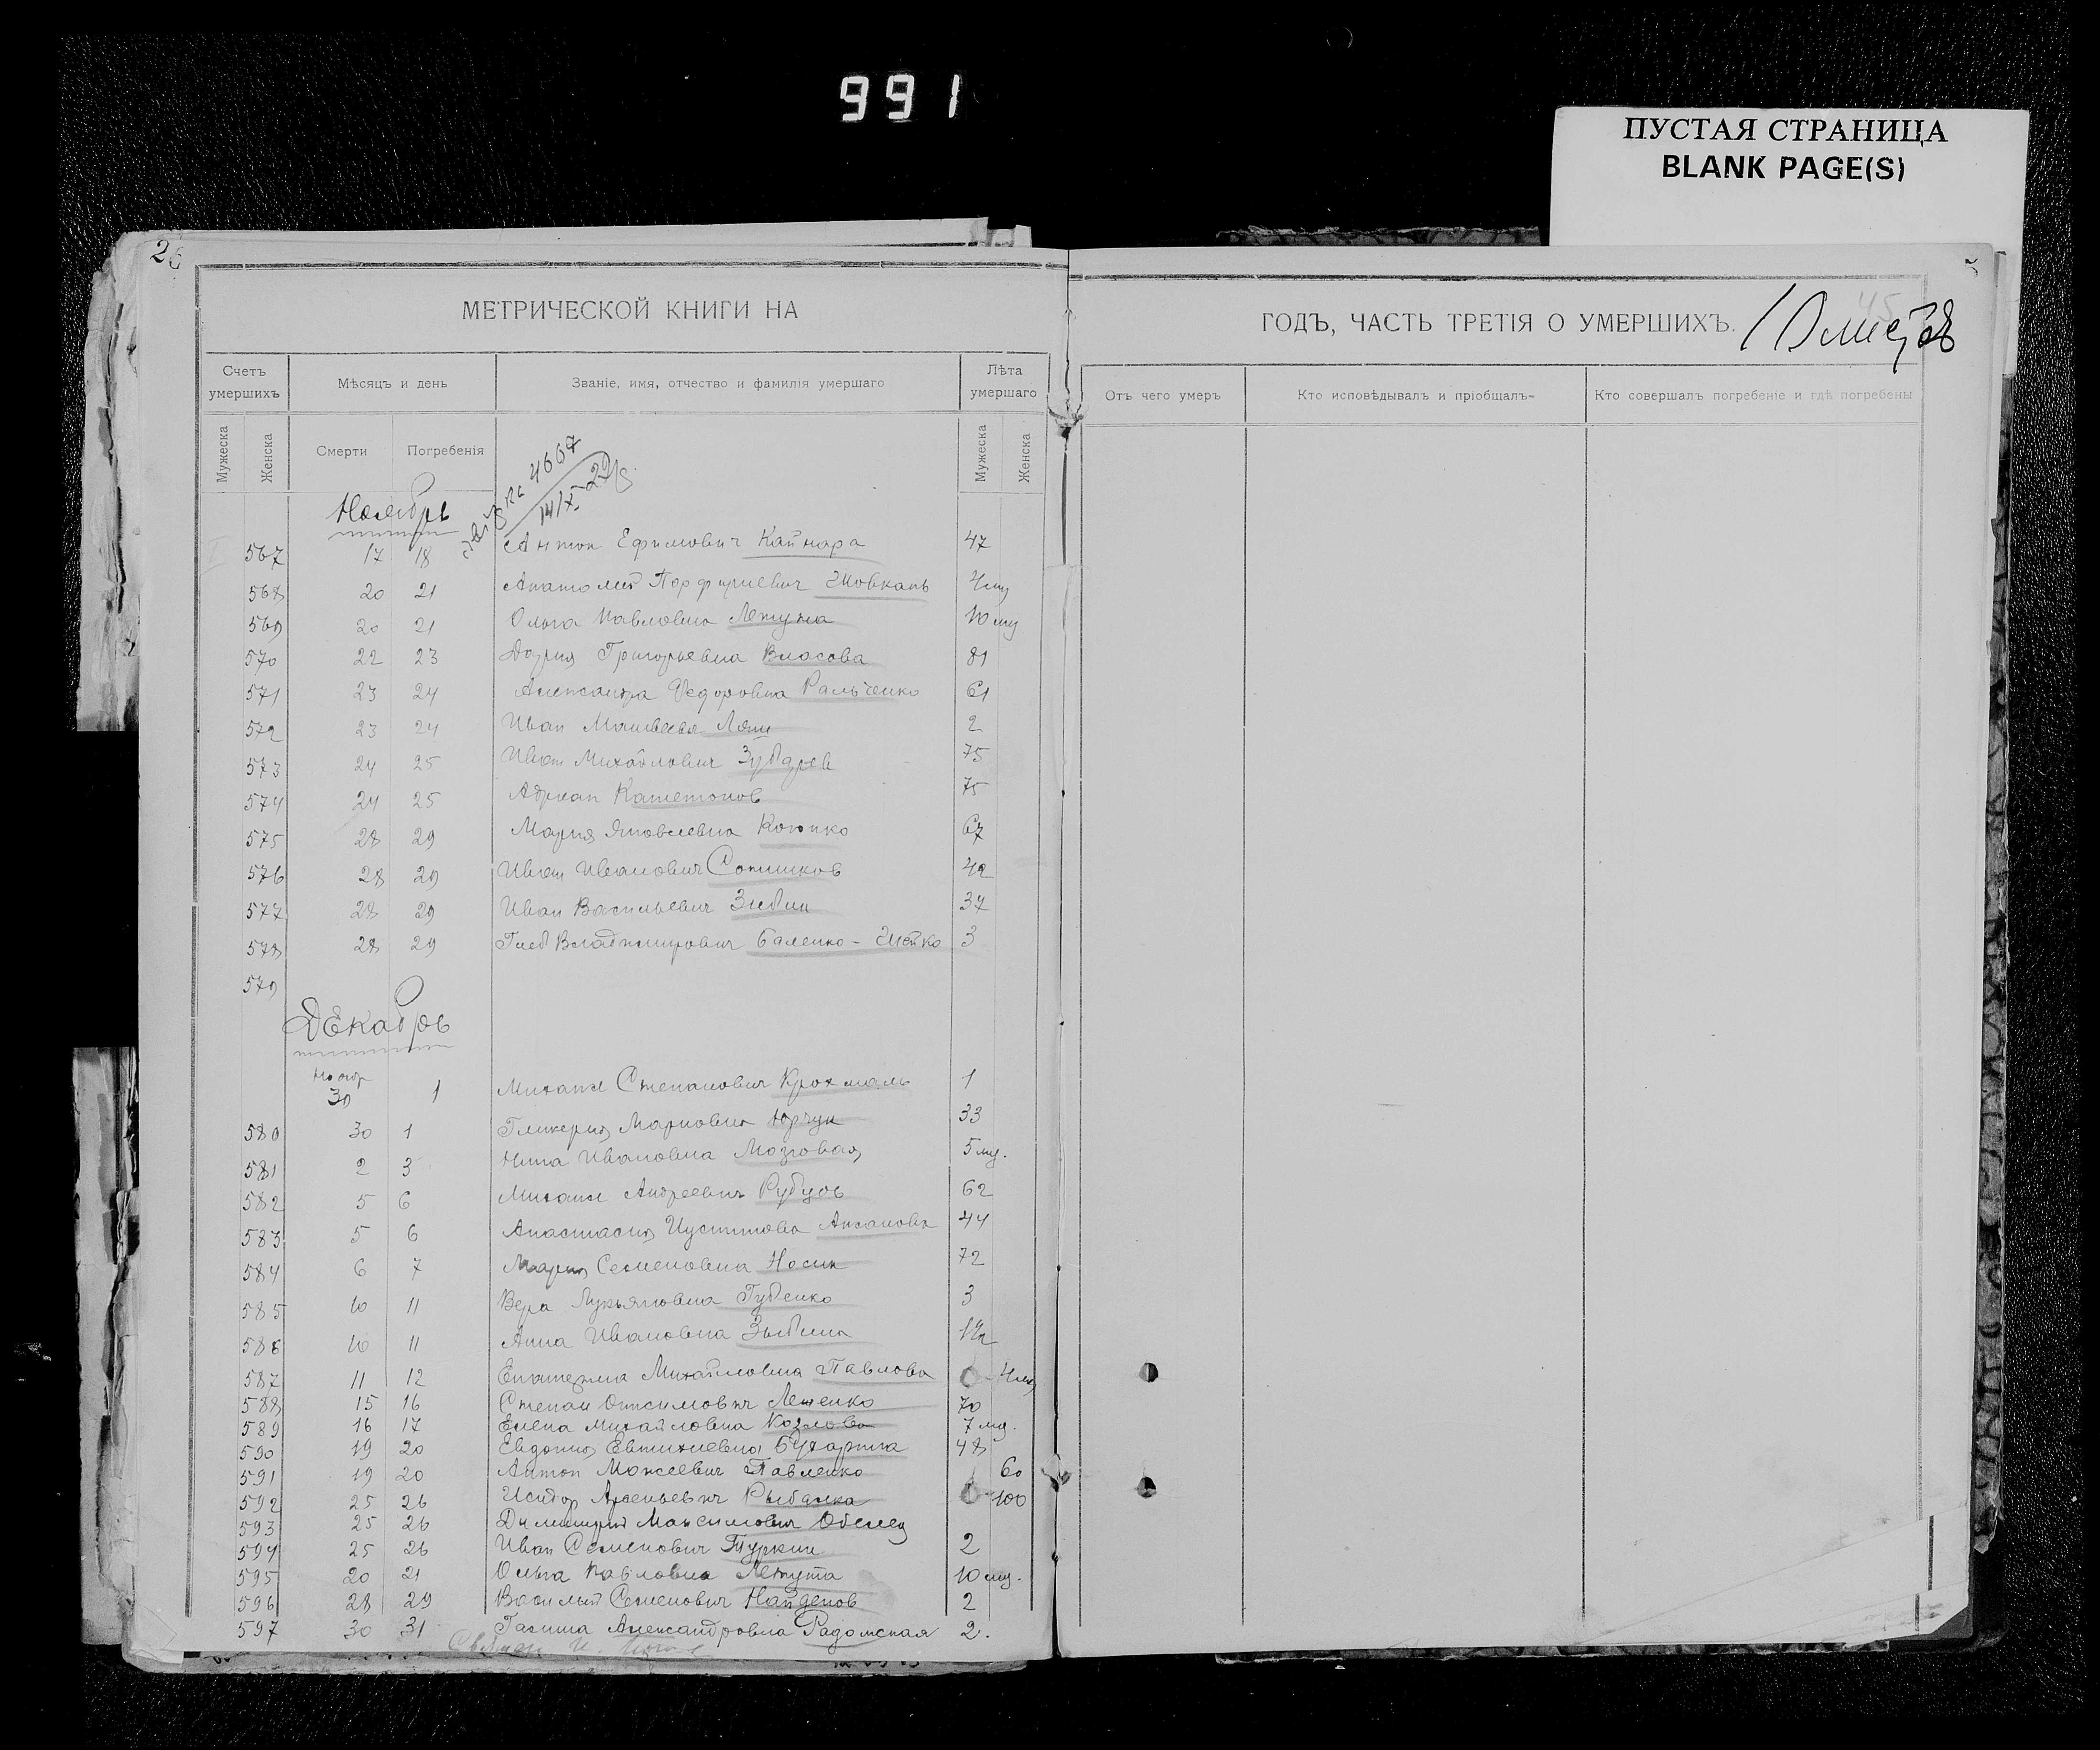 991
ПУСТАЯ СТРАНИЦА
BLANK PAGE(S)
26
МЕТРИЧЕСКОЙ КНИГИ НА
ГОДЪ, ЧАСТЬ ТРЕТІЯ О УМЕРШИХЪ.
Счетъ умершихъ
Мѣсяцъ и день
Званіе, имя, отчество и фамилія умершаго
Лѣта умершаго
Отъ чего умеръ
Кто исповѣдывалъ и пріобщалъ
Кто совершалъ погребеніе и гдѣ погребены
Мужеска
Женска
Смерти
Погребенія
Мужеска
Женска
4667
14/X
Ноябрь
567 17 18 Антон Ефимович Кайнара 47
568 20 21 Анатолий Порфириевич Шовкань 4 мц
569 20 21 Ольга Павловна 10 мц
570 22 23 Дария Григорьевна Власова 81
571 23 24 Александра Федоровна Ральченко 61
572 23 24 Иван 2
573 24 25 Иван Михайлович 75
574 24 25 Адриан 75
575 28 29 Мария Яковлевна 67
576 28 29 Иван Иванович Сотников 42
577 28 29 Иван Васильевич Зыбин 37
578 28 29 Глеб Владимирович Баленко-Шейко 3
579
Декабрь
Ноябр
30 1 Михаил Степанович Крохмаль 1
580 30 1 Гликерия Марковна Юрчук 33
581 2 3 Нина Ивановна Мозговая 5 мц.
582 5 6 Михаил Андреевич Рубцов 62
583 5 6 Анастасия 44
584 6 7 Мария Семеновна Носик 72
585 10 11 Вера Лукьяновна Губенко 3
586 10 11 Анна Ивановна Зыбина
587 11 12 Екатерина Михайловна Павлова 4 мц
588 15 16 Степан Онисимович 70
589 16 17 Елена Михайловна Козлова 7 мц.
590 19 20 Евдокия Евтихиевна Бухарина 48
591 19 20 Антон Моисеевич Павленко 60
592 25 26 Исидор Арсеньевич Рыбалка 100
593 25 26 Димитрий Максимович
594 25 26 Иван Семенович Туркин 2
595 20 21 Ольга Павловна Лепута 10 мц.
596 28 29 Василий Семенович Найденов 2
597 30 31 Галина Александровна Радомская 2.